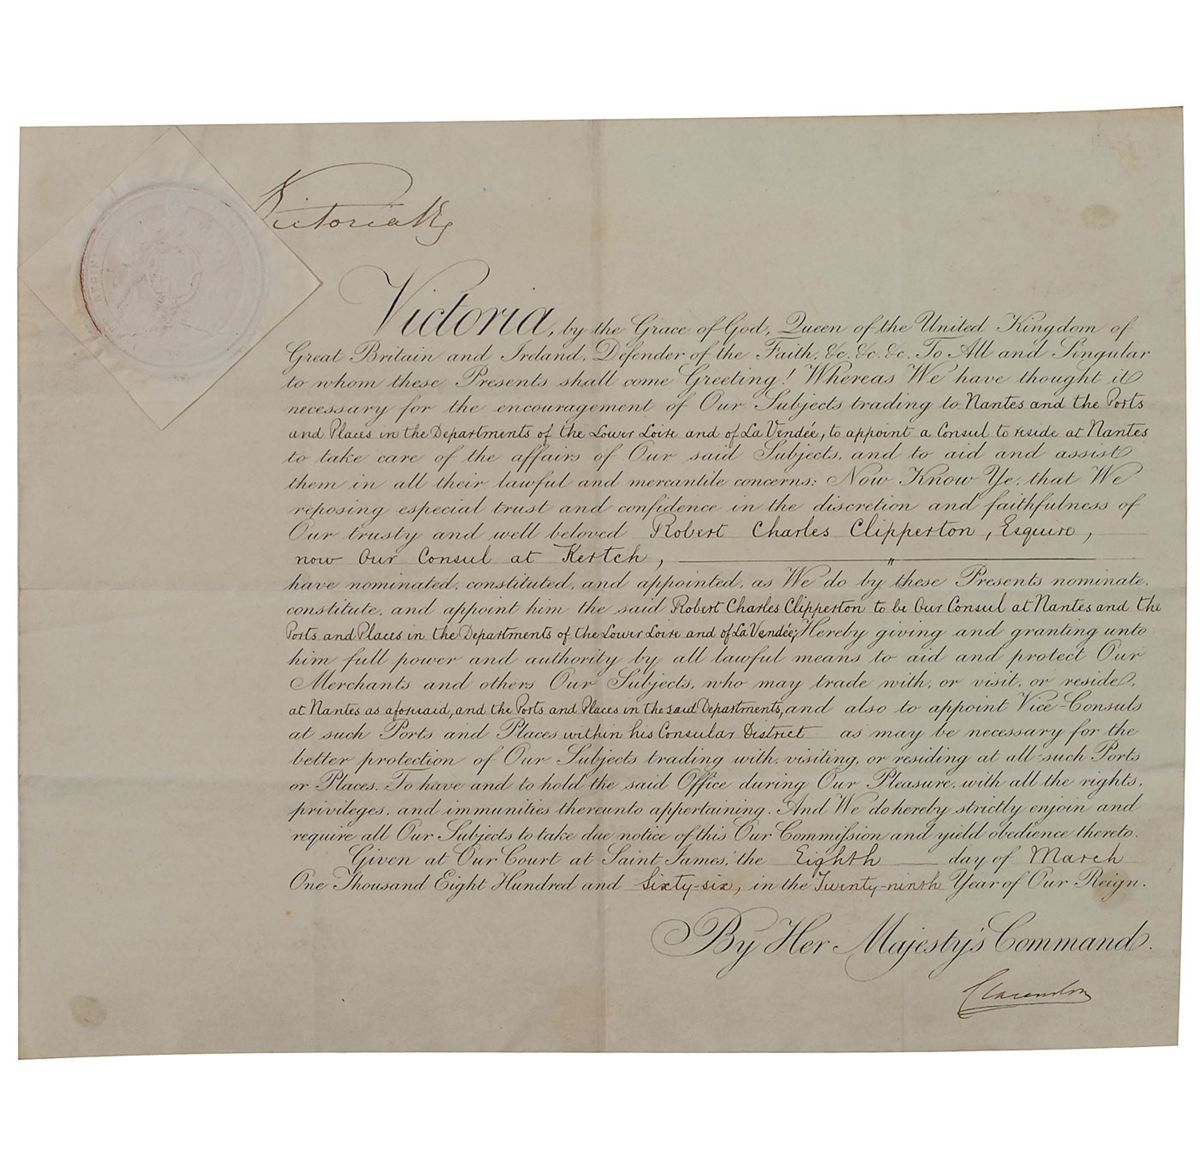 Victoria R
Victoria, by the Grace of God, Queen of the United Kingdom of
Great Britain and Ireland, Defender of the Faith, &c. &c. &c. To All and Singular
to whom these Presents shall come Greeting! Whereas We have thought it
necessary for the encouragement of Our Subjects trading to Nantes and the Ports
and Places in the Departments of the Lower Loire and of La Vendée, to appoint a Consul to reside at Nantes
to take care of the affairs of Our said Subjects, and to aid and assist
them in all their lawful and mercantile concerns: Now Know Ye, that We
reposing especial trust and confidence in the discretion and faithfulness of
Our trusty and well beloved Robert Charles Clipperton, Esquire,
now Our Consul at Kertch,
have nominated, constituted, and appointed, as We do by these Presents nominate,
constitute, and appoint him the said Robert Charles Clipperton to be Our Consul at Nantes and the
Ports and Places in the Departments of the Lower Loire and of La Vendée; Hereby giving and granting unto
him full power and authority by all lawful means to aid and protect Our
Merchants and others Our Subjects, who may trade with, or visit, or reside,
at Nantes as aforesaid, and the Ports and Places in the said Departments, and also to appoint Vice-Consuls
at such Ports and Places within his Consular District as may be necessary for the
better protection of Our Subjects trading with, visiting, or residing at all such Ports
or Places. To have and to hold the said Office during Our Pleasure, with all the rights,
privileges, and immunities thereunto appertaining. And We do hereby strictly enjoin and
require all Our Subjects to take due notice of this Our Commission and yield obedience thereto.
Given at Our Court at Saint James,' the Eighth day of March
One Thousand Eight Hundred and Sixty-six, in the Twenty-ninth Year of Our Reign.
By Her Majesty's Command.
Clarendon